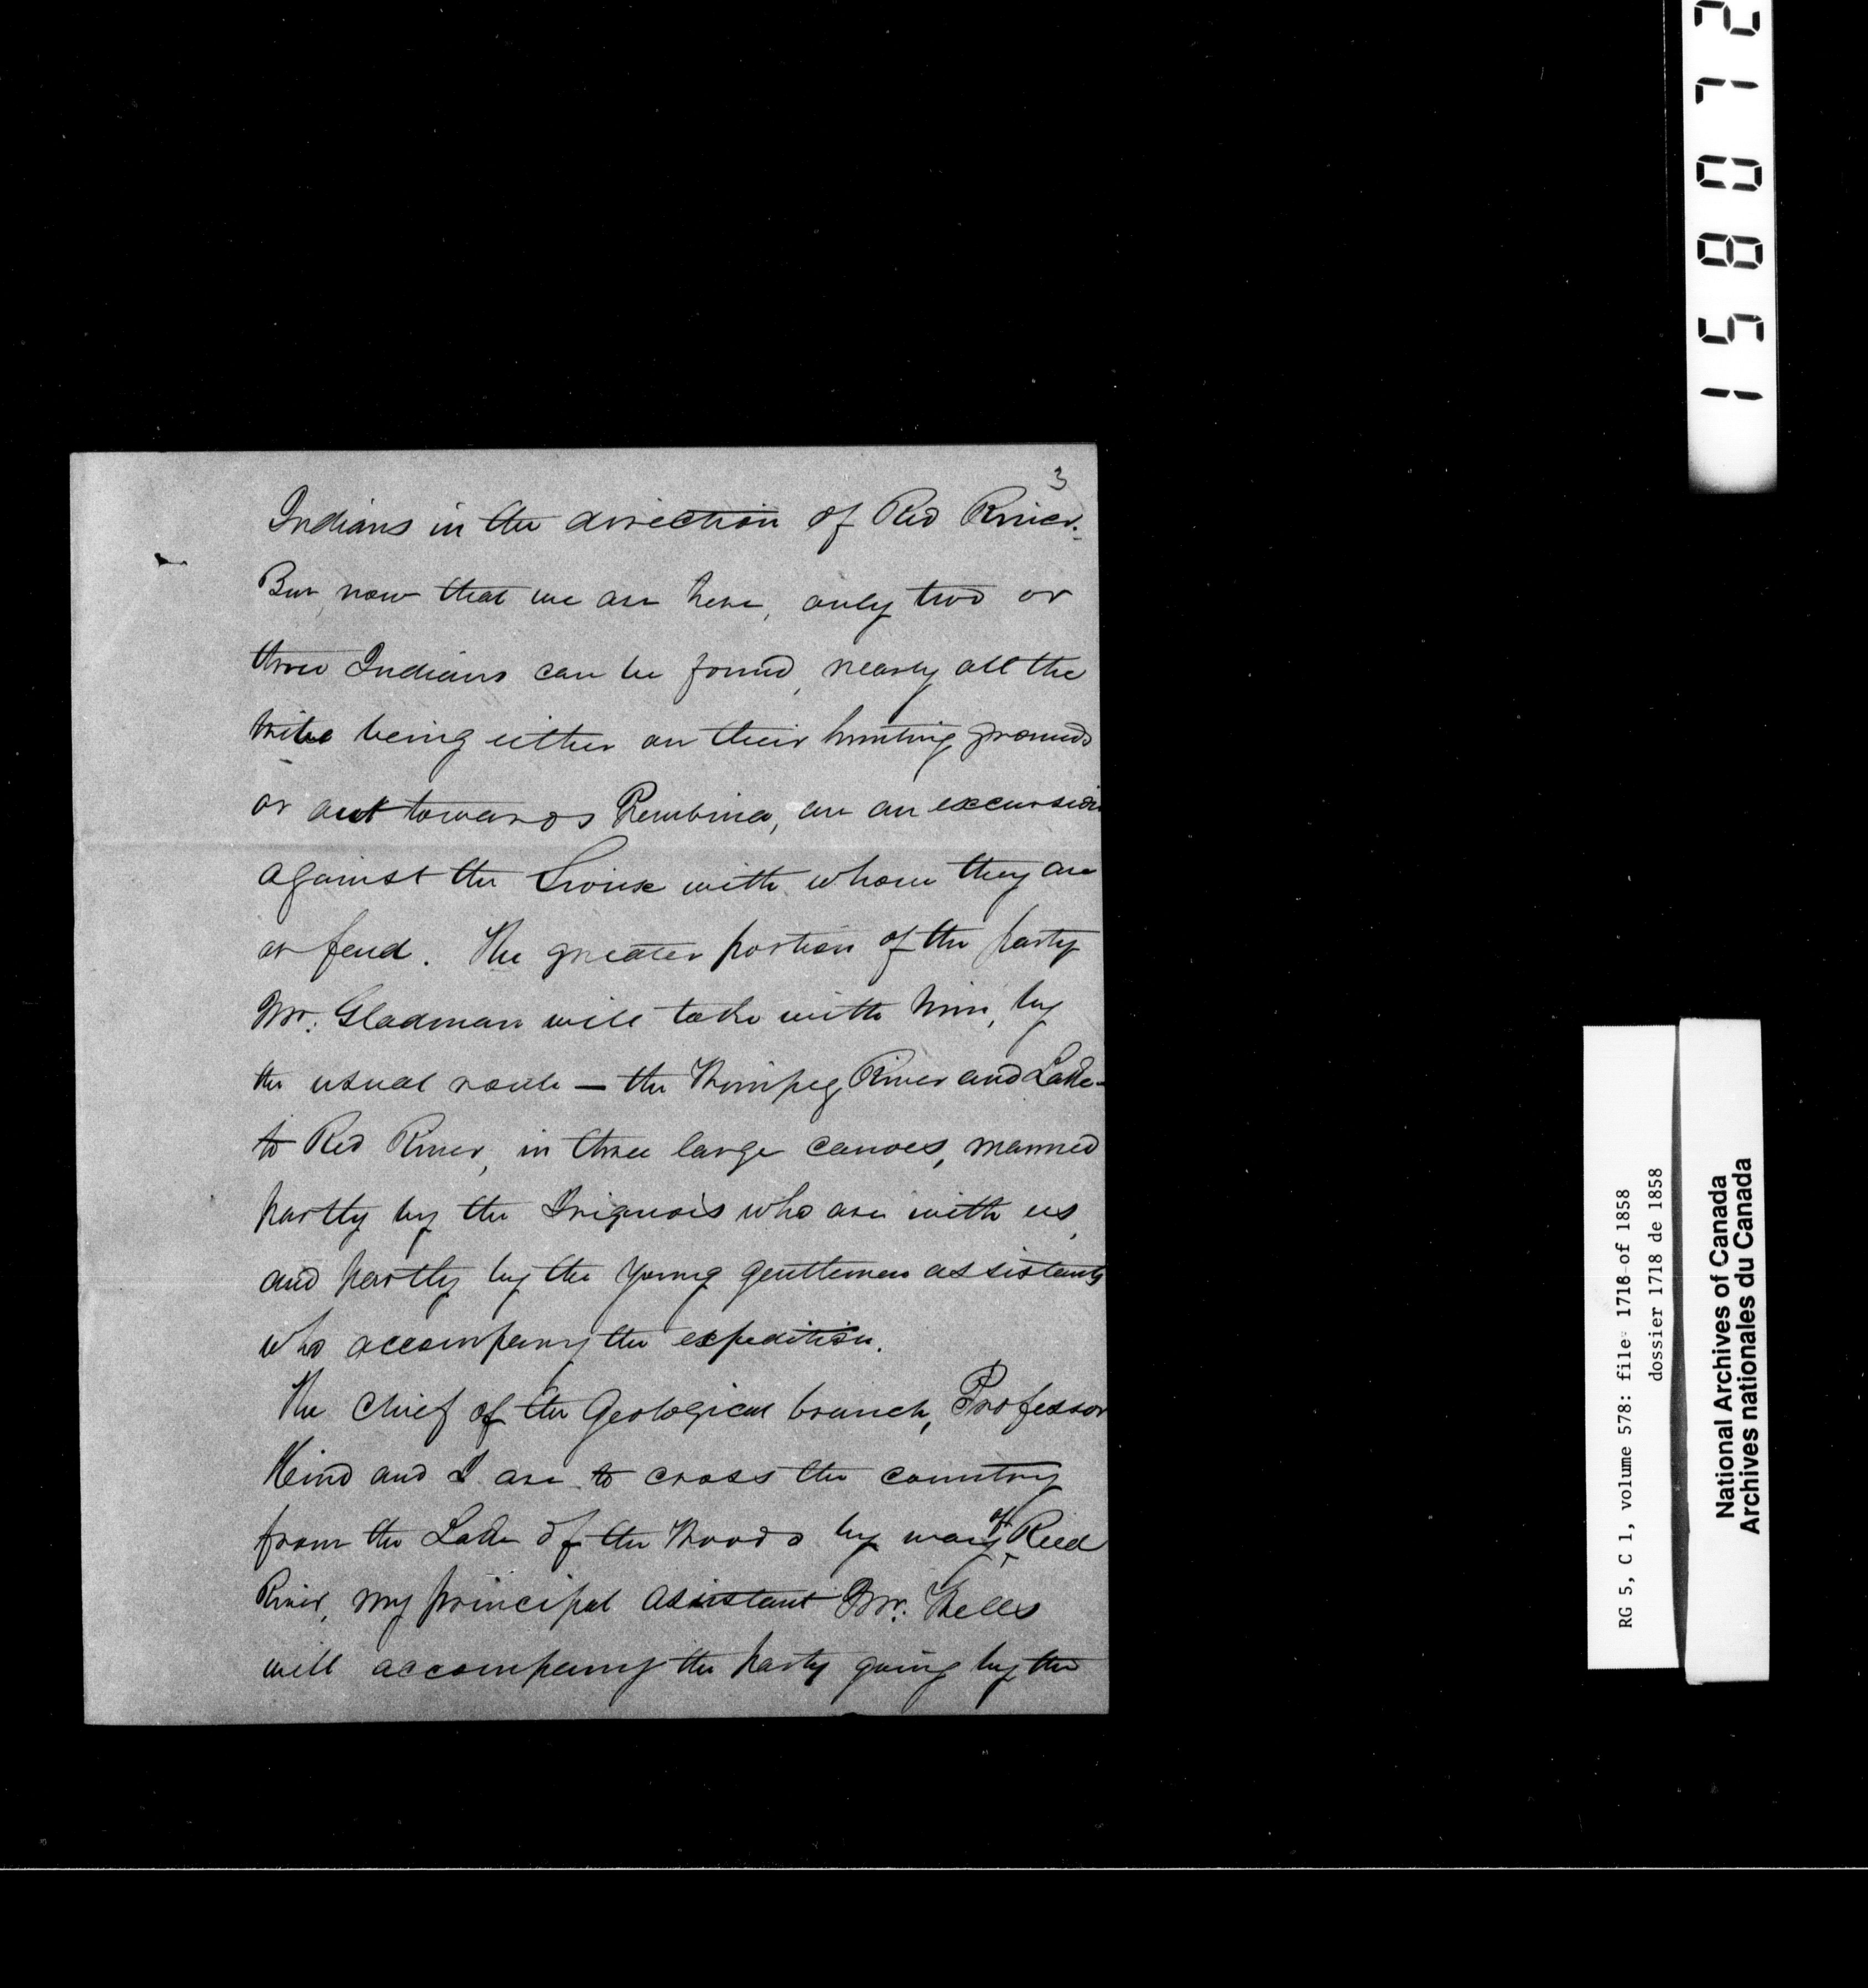 3
Indians in the direction of Red River.
But now that we are here, only two or
three Indians can be found, nearly all the
tribe being either on their hunting grounds
or out towards Pembina, on an excursion
against the Sioux with whom they are
at feud. The greater portion of the party
Mr. Gladman will take with him, by
the usual route — the Winipeg River and Lake —
to Red River, in three large canoes, manned
partly by the Iriquois who are with us,
and partly by the young gentlemen assistants
who accompany the expedition.
The Chief of the Geological branch, Professor
Hind and I are to cross the country
from the Lake of the Woods by way of Reed
River, my principal assistant Mr. Wells
will accompany the party going by the
158072
RG 5, C 1, volume 578: file 1718 of 1858
dossier 1718 de 1858
National Archives of Canada
Archives nationales du Canada